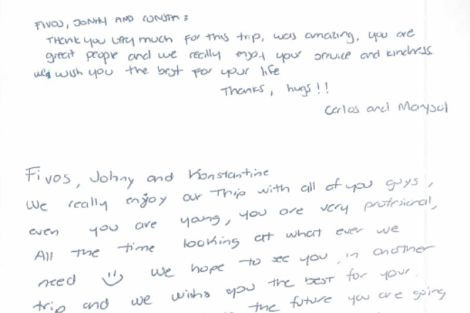 FIVOS, JONNY AND CONSTA:
Thank you very much for this trip, was amazing, you are
great people and we really enjoy your service and kindness
we wish you the best for your life
Thanks, hugs!!
Carlos and Marysol
Fivos, Johny and Konstantine
We really enjoy our Trip with all of you guys,
even you are yang, you are very profesional,
All the time looking at what ever we
need we hope to see you in another
trip and we wishs you the best for your
the future you are going